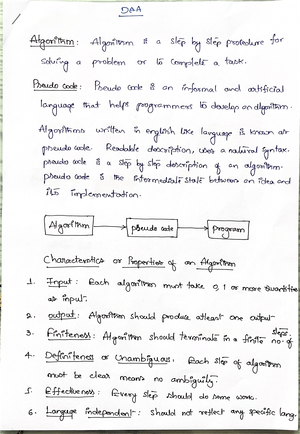 DAA
Algorithm: Algorithm is a step by step procedure for
solving a problem or to complete a task.
Pseudo code: Pseudo code is an informal and artificial
language that helps programmers to develop an algorithm.
Algorithms written in english like language is known as
pseudo code. Readable description, uses a natural syntax.
pseudo code is a step by step description of an algorithm.
pseudo code is the intermediate state between an idea and
its implementation.
Algorithm → pseudo code → program
Characteristics or Properties of an Algorithm
1. Input: Each algorithm must take 0, 1 or more quantities
as input.
2. output: Algorithm should produce atleast one output
3. Finiteness: Algorithm should terminate in a finite no. of steps.
4. Definiteness or Unambiguous. Each step of algorithm
must be clear means no ambiguity.
5. Effectiveness: Every step should do some work.
6. Language independent: should not reflect any specific lang.